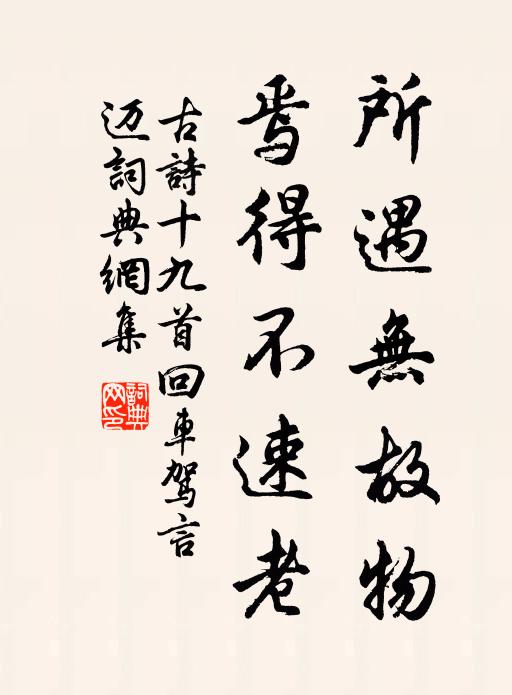 所遇無故物
焉得不速老
古詩十九首回車駕言
迈詞典網集
詞典网印